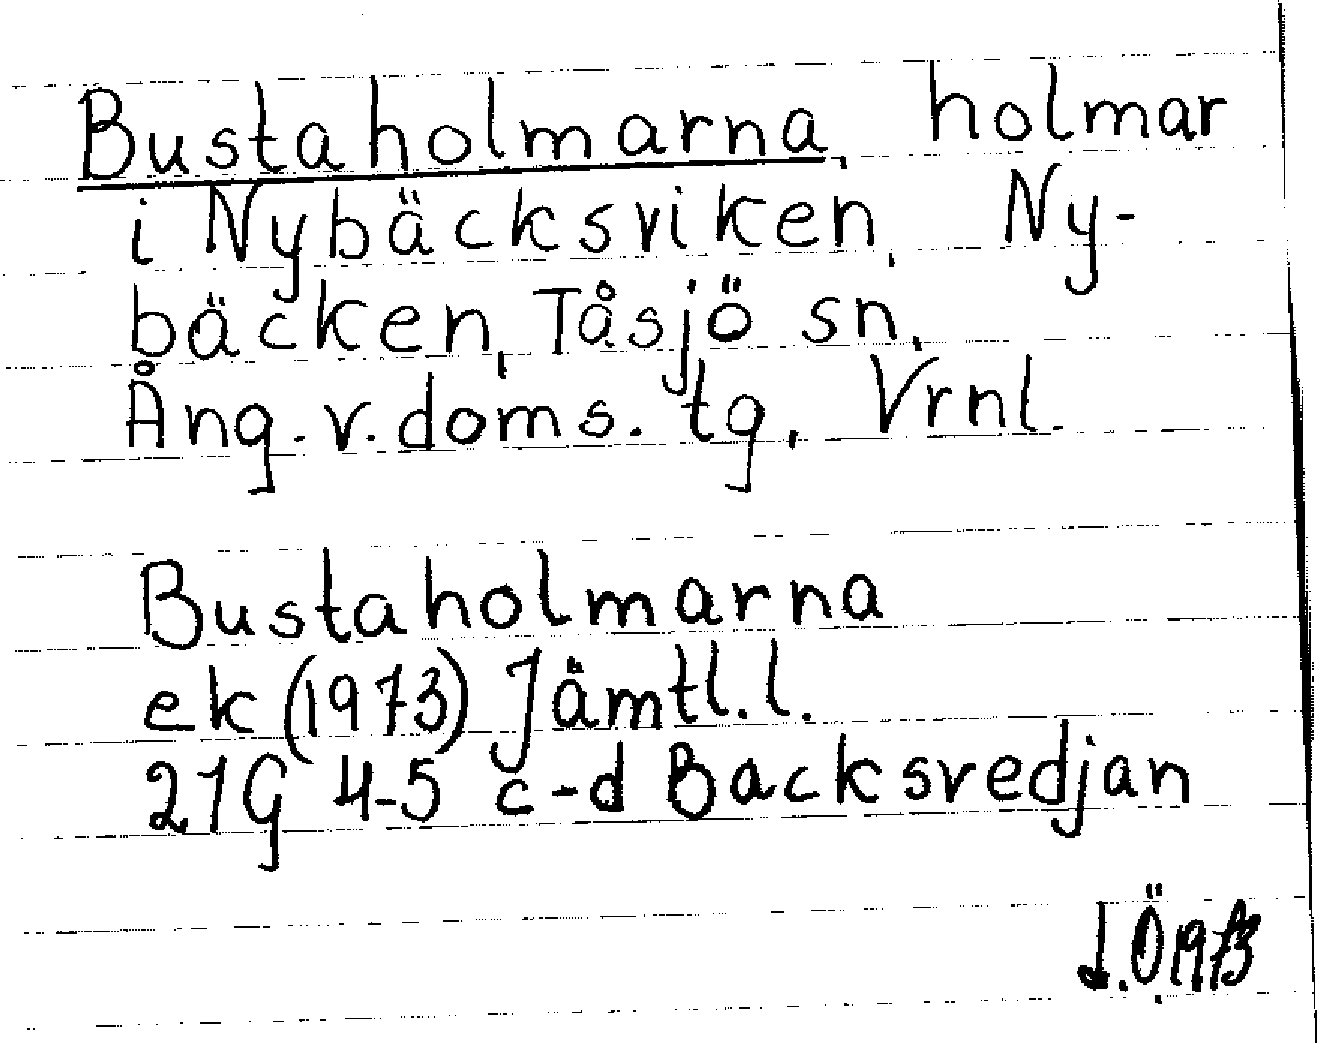 Bustaholmarna, holmar
i Nybäcksviken, Ny-
bäcken, Tåsjö sn,
Ång. v. doms. tg, Vrnl.
Bustaholmarna
ek (1973) Jämtl. l.
21G 4-5 c-d Backsvedjan
I.Ö. 1973